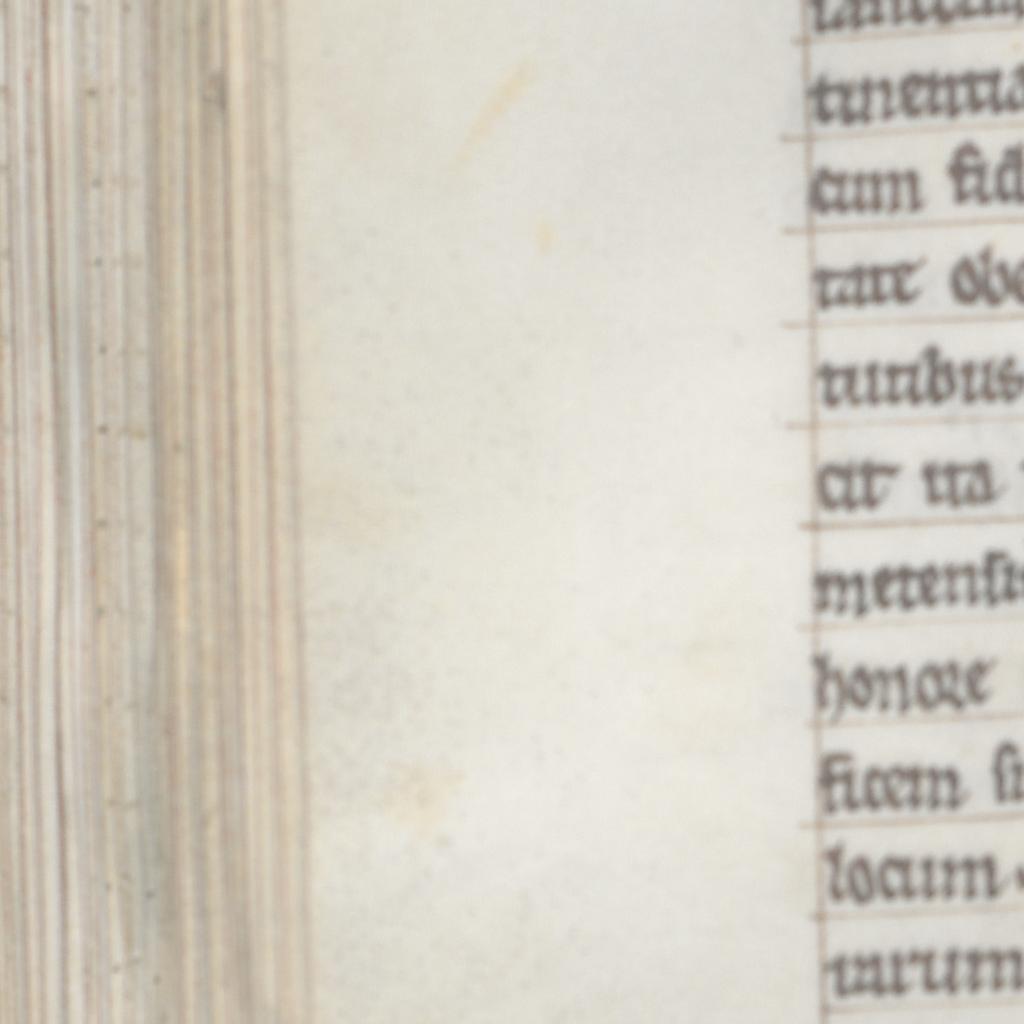 tinentia
cum fid
tate obe
turibus
cit ita
metensis
honore
ficem si
locum
tarum